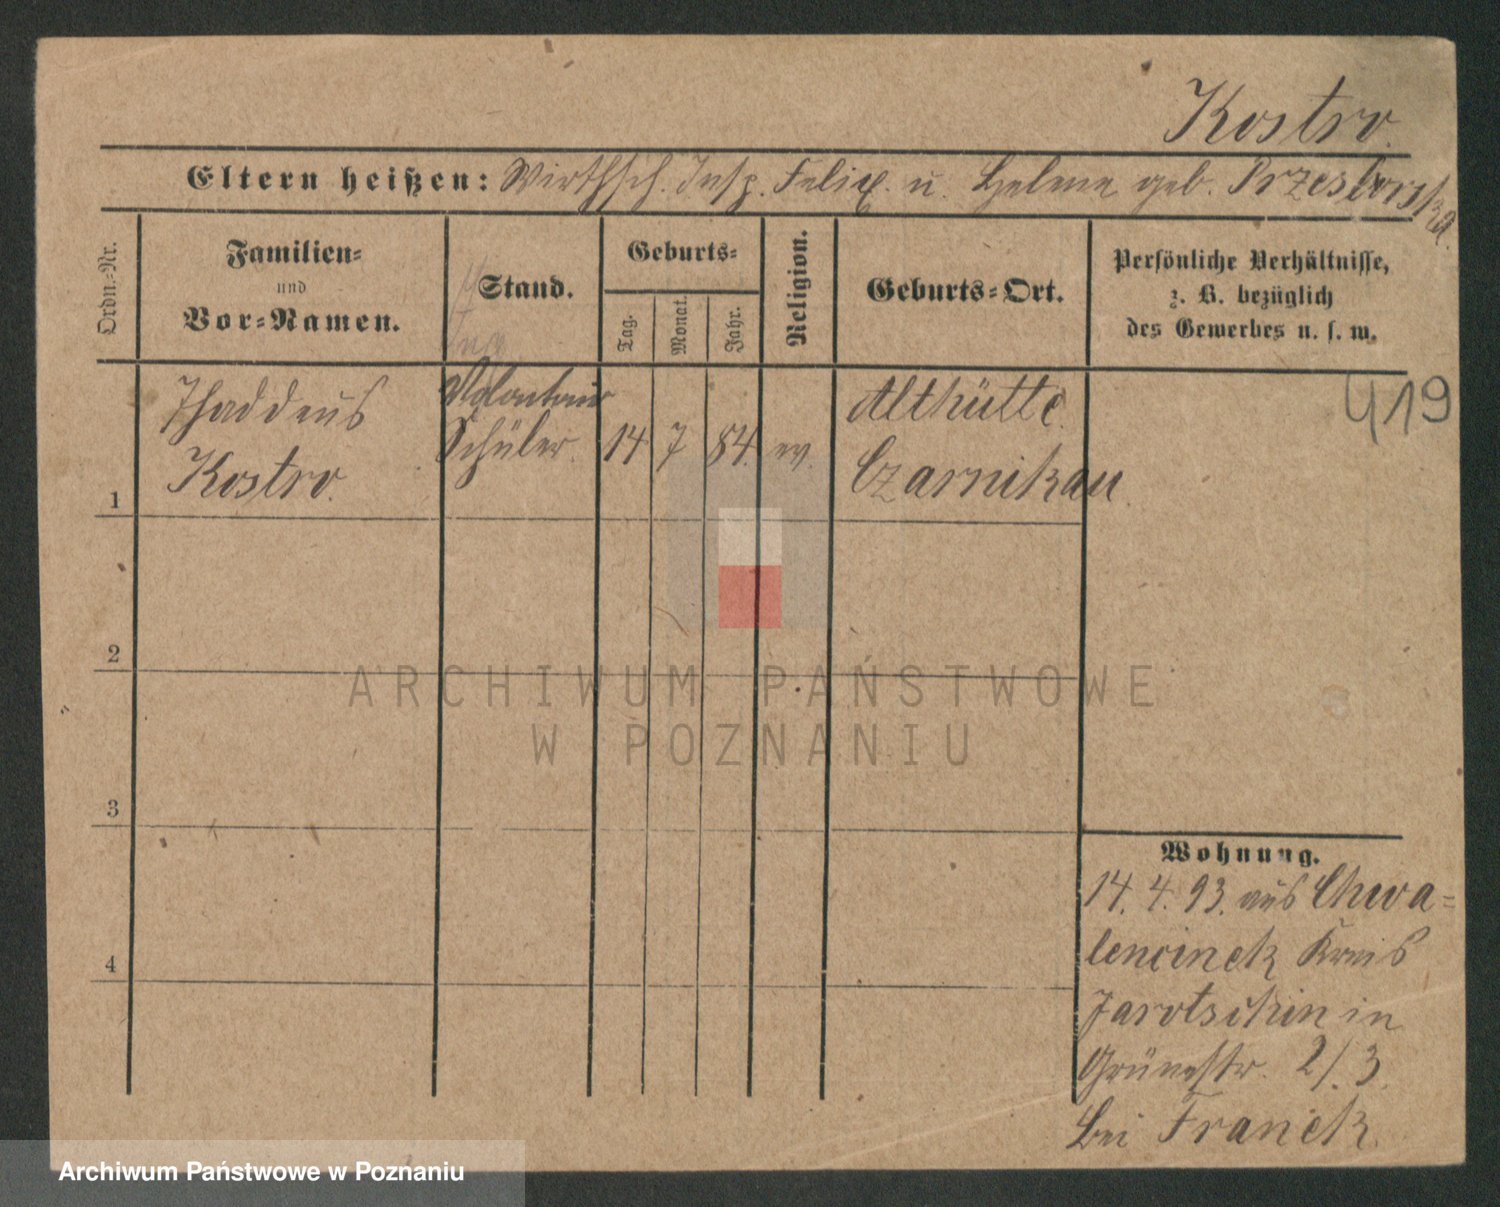 Kostro.
Eltern heißen: Wirthsch. Insp. Felix u. Helene geb. Przesborska.
Ordn.-Nr.
Familien-
und
Vor-Namen.
Stand.
Geburts-
Tag.
Monat.
Jahr.
Religion.
Geburts-Ort.
Persönliche Verhältnisse,
z. B. bezüglich
des Gewerbes u. s. w.
Thaddeus
Kostro.
Volontair
Schüler.
14 7 84. ev.
Althütte
Czarnikau
419
1
2
3
4
ARCHIWUM PAŃSTWOWE
W POZNANIU
Wohnung.
14. 4. 93. aus Chwa=
lencinek Kreis
Jarotschin in
Grünestr. 2/3.
bei Franck.
Archiwum Państwowe w Poznaniu